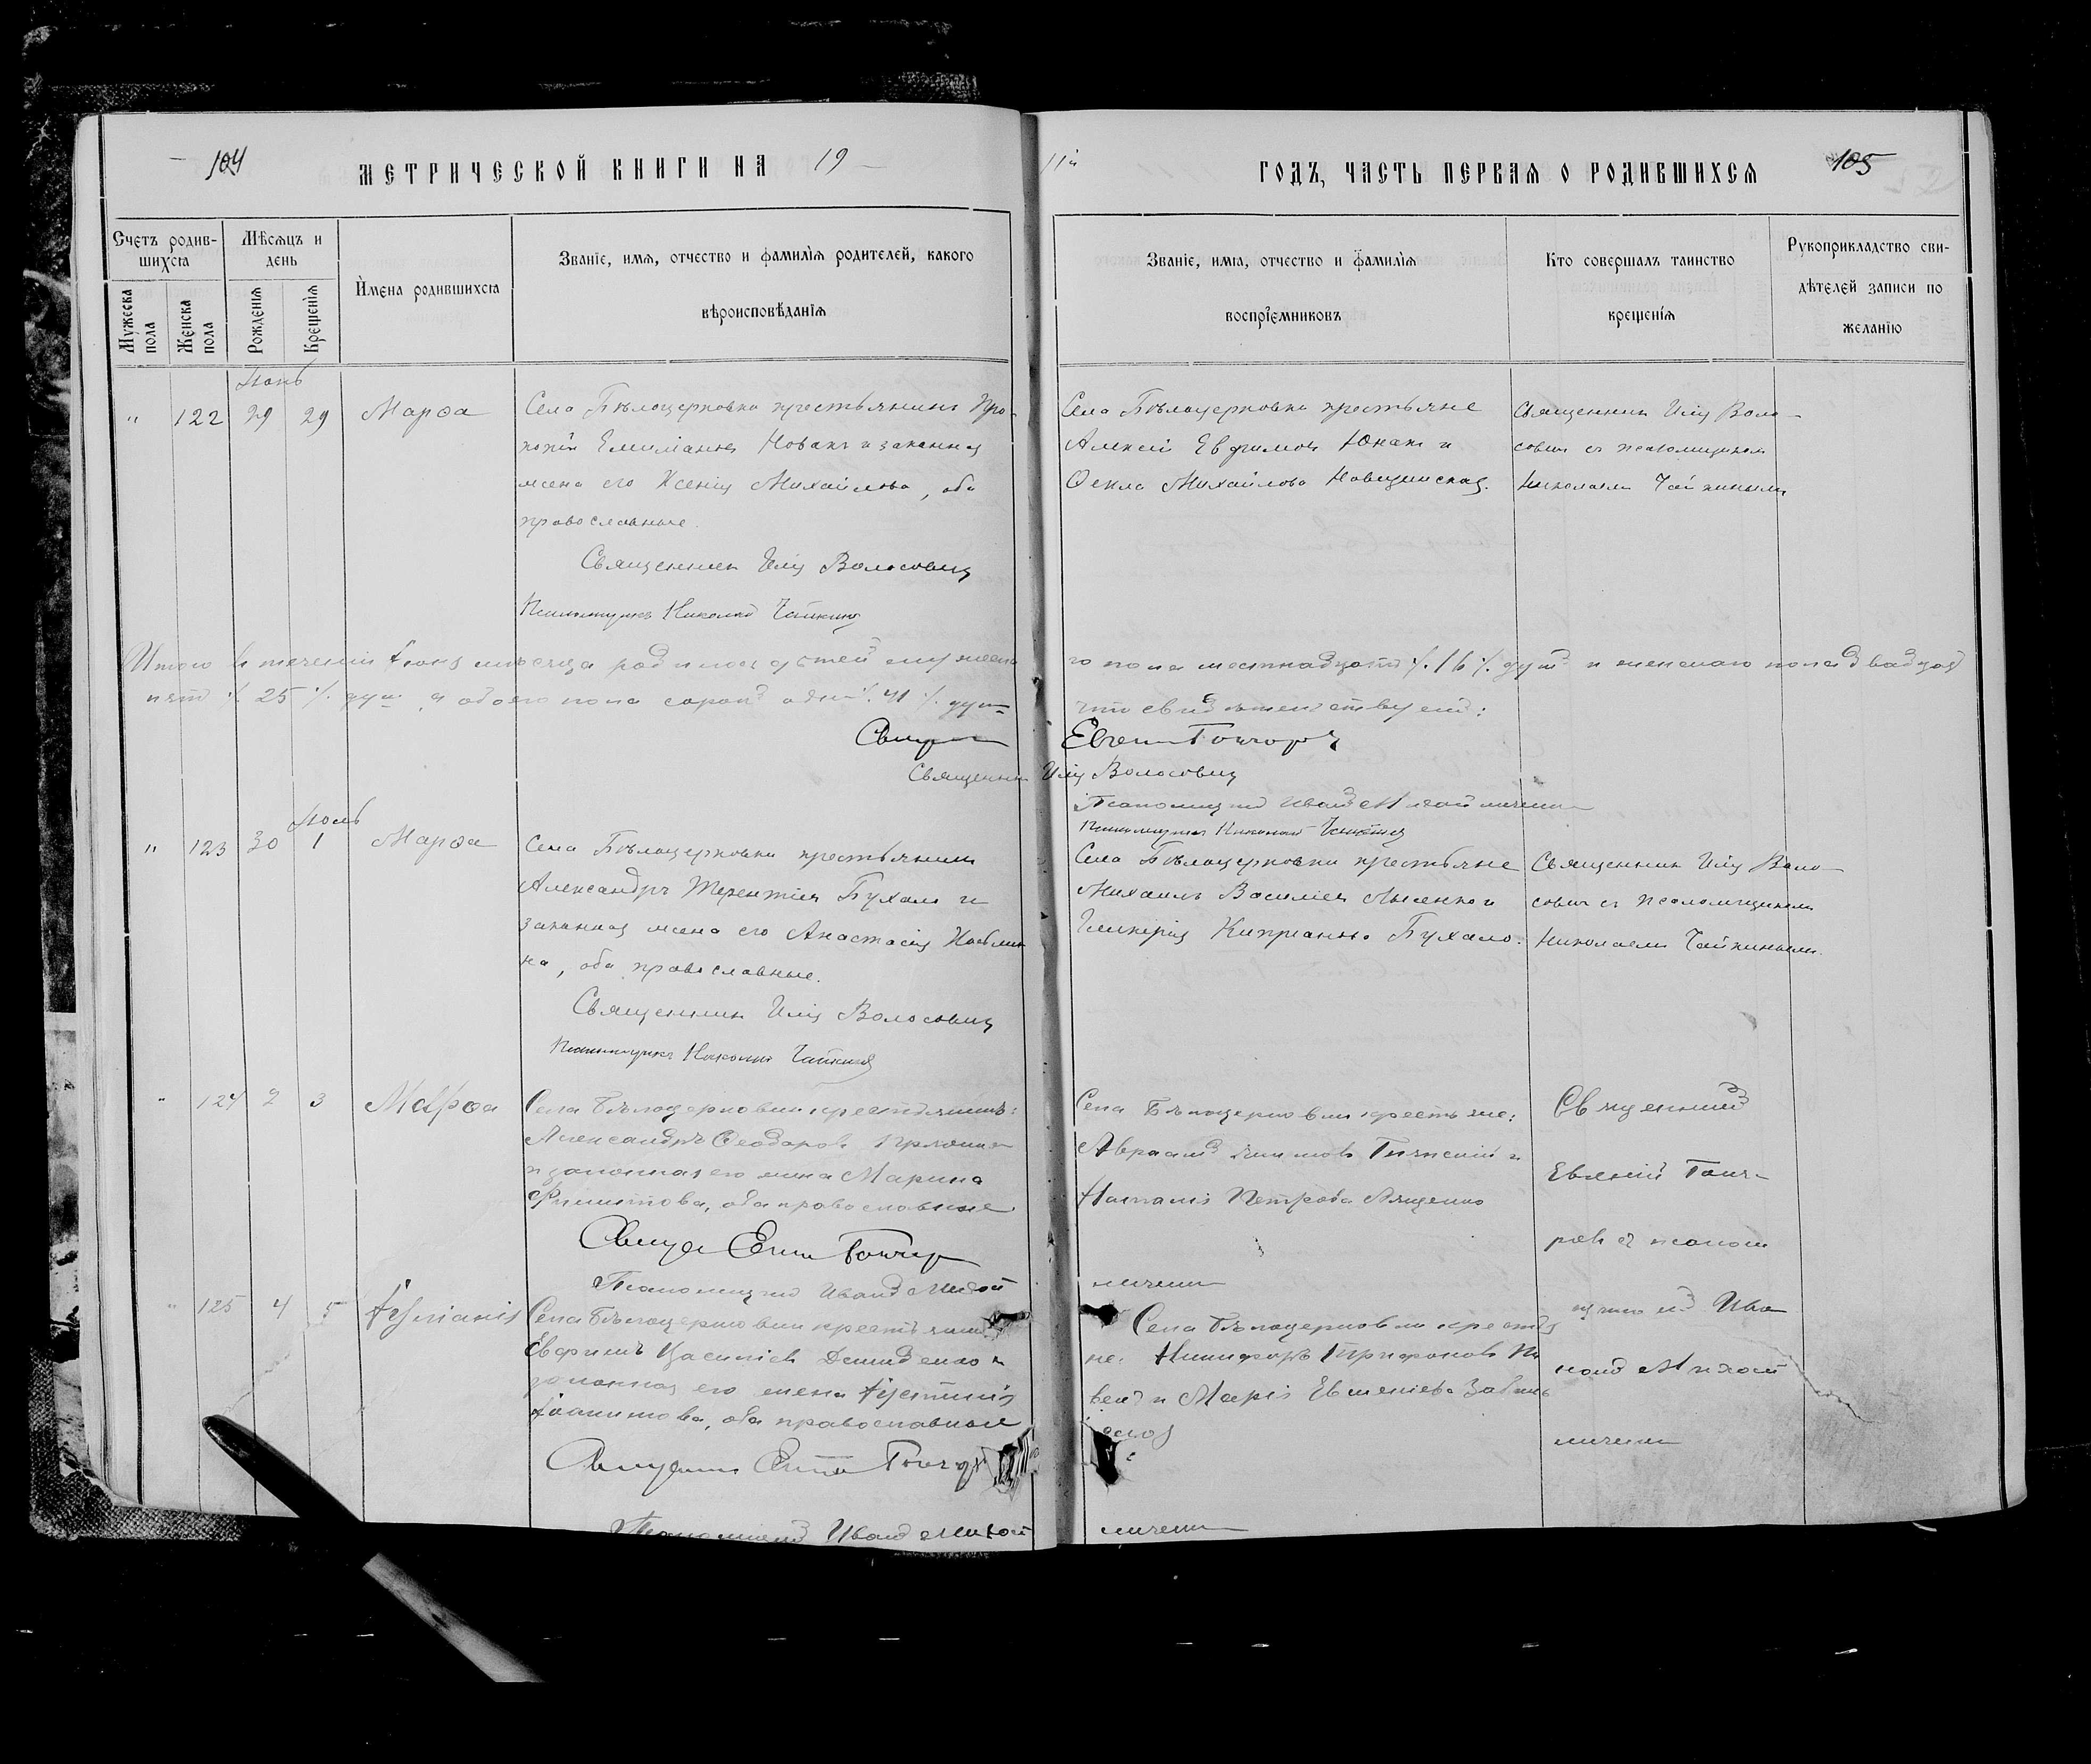 104
МЕТРИЧЕСКОЙ КНИГИ НА 19
11й ГОДЪ, ЧАСТЬ ПЕРВАЯ О РОДИВШИХСЯ
105
Счетъ родив-
шихся
Мѣсяцъ и
день
Мужеска
пола
Женска
пола
Рожденія
Крещенія
Имена родившихся
Званіе, имя, отчество и фамилія родителей, какого
вѣроисповѣданія
Званіе, имя, отчество и фамилія
воспріемниковъ
Кто совершалъ таинство
крещенія
Рукоприкладство сви-
дѣтелей записи по
желанію
Іюнь
" 122 29 29 Марѳа
Села Бѣлоцерковки крестьянинъ Про-
копій Емиліановъ Новакъ и законная
жена его Ксенія Михайлова, оба
православные.
Священникъ Илія Волосовичъ
Псаломщикъ Николай Чайкинъ
Села Бѣлоцерковки крестьяне
Алексій Евфимовъ Юнакъ и
Ѳекла Михайлова Новицинская.
Священникъ Илія Воло-
совичъ съ псаломщикомъ
Николаемъ Чайкинымъ
Итого въ теченіи Іюня мѣсяца родилось дѣтей мужеска
го пола шестнадцать ./.16./. душъ и женскаго пола двадцать
пять ./.25./. душъ, а обоего пола сорокъ одна ./.41./. душ
что свидѣтельствуемъ:
Священникъ Илія Волосовичъ
Псаломщикъ Иванъ Михайличенко
Псаломщикъ Николай Чайкинъ
Іюль
" 123 30 1 Марѳа
Села Бѣлоцерковки крестьянинъ
Александръ Терентіевъ Бухало и
законная жена его Анастасія Космин
на, оба православные.
Священникъ Илія Волосовичъ
Псаломщикъ Николай Чайкинъ
Села Бѣлоцерковки крестьяне
Михаилъ Василіевъ Лысенко и
Гликерія Кипріанова Бухало.
Священникъ Илія Воло-
совичъ съ псаломщикомъ
Николаемъ Чайкинымъ.
" 124 2 3 Марѳа
Села Бѣлоцерковки крестьянинъ:
Александръ Ѳеодоровъ
и законная его жена Марина
Филиппова, оба православные
Псаломщикъ Иванъ Михай
личенко
Села Бѣлоцерковки крестьяне:
Авраамъ и
Наталія Петрова Ященко
Священникъ
Евгеній Гонча-
ровъ съ псалом
щикомъ Ива
номъ Михай
личенко
" 125 4 5 Іуліанія
Села Бѣлоцерковки крестьянинъ
Евфимъ Василіевъ Демиденко и
законная его жена Іустинія
оба православные
Псаломщикъ Иванъ Михай
личенко
Села Бѣлоцерковки крестья
не: Никифоръ Трифоновъ
и Марія Евгеніева